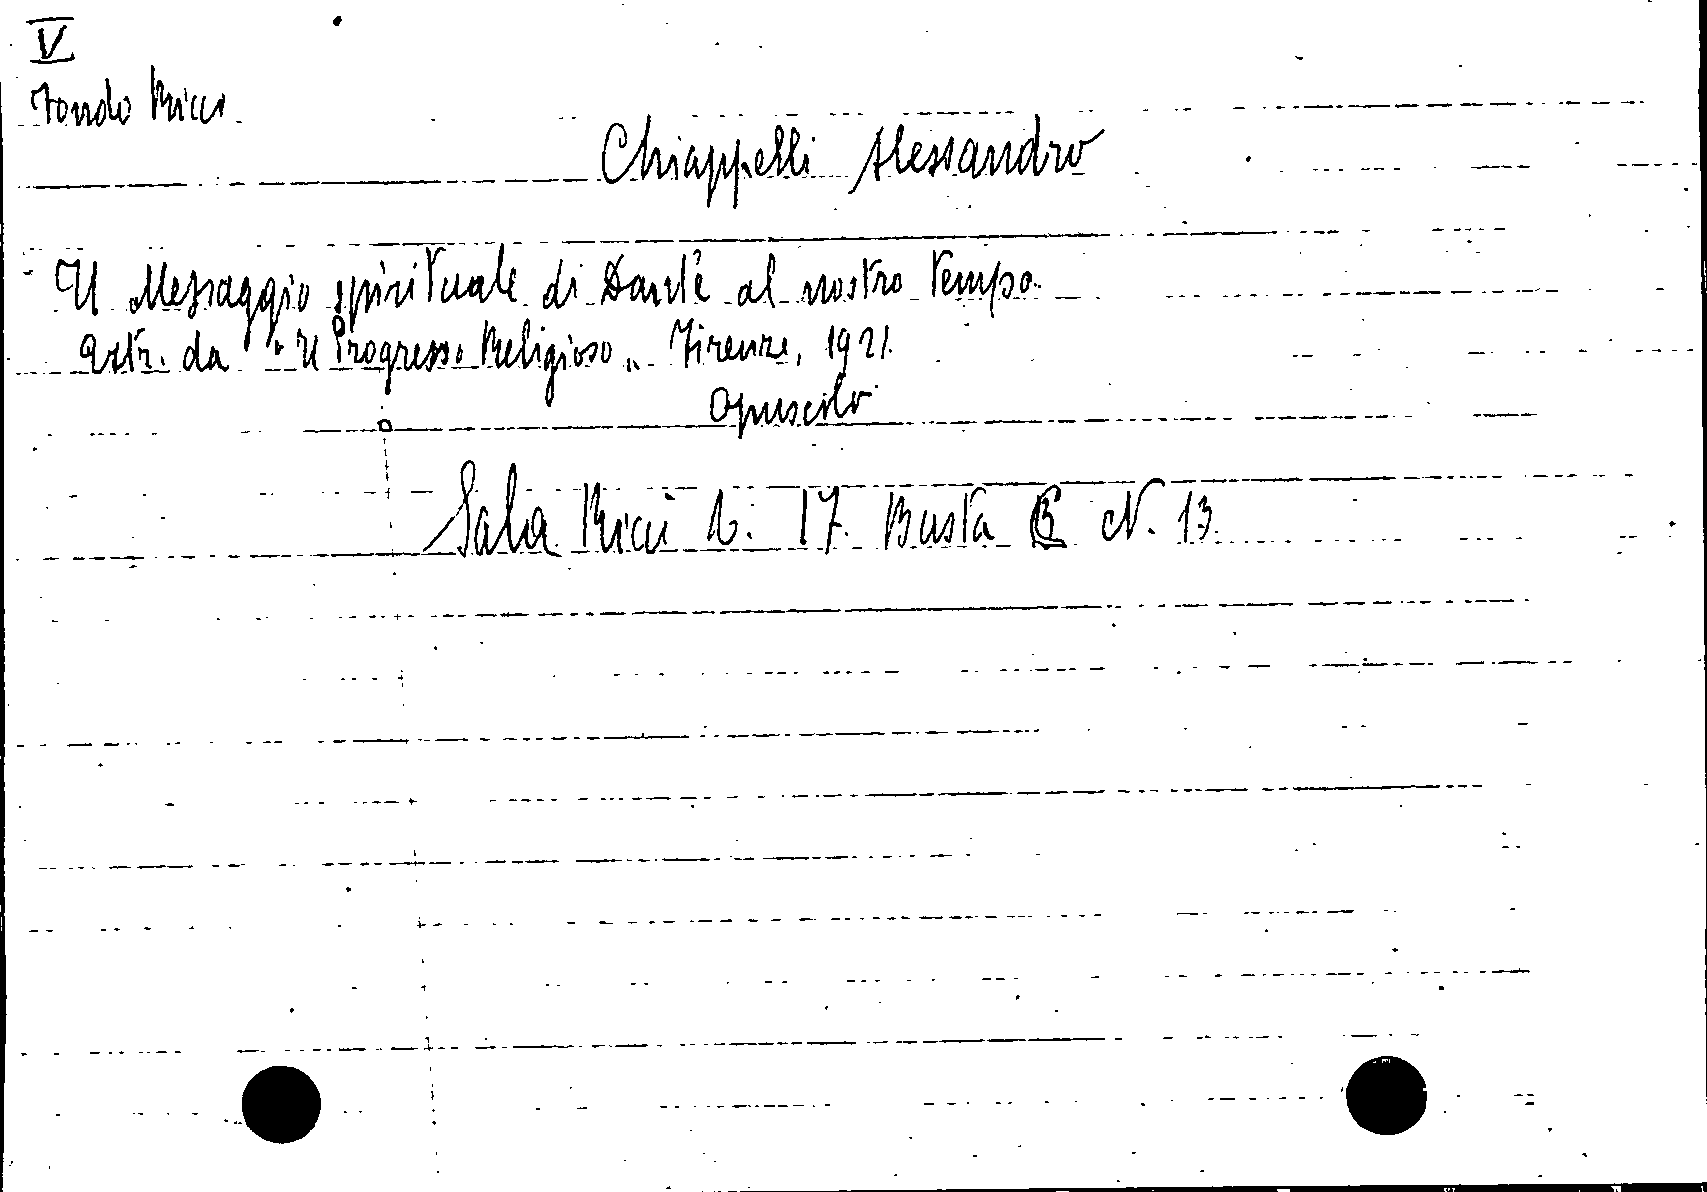 V
Fondo Ricci
Chiappelli Alessandro
Il Messaggio spirituale di Dante al nostro tempo.
Estr. da "Il Progresso Religioso" Firenze, 1921.
Opuscolo
Sala Ricci L. 17. Busta B N. 13.